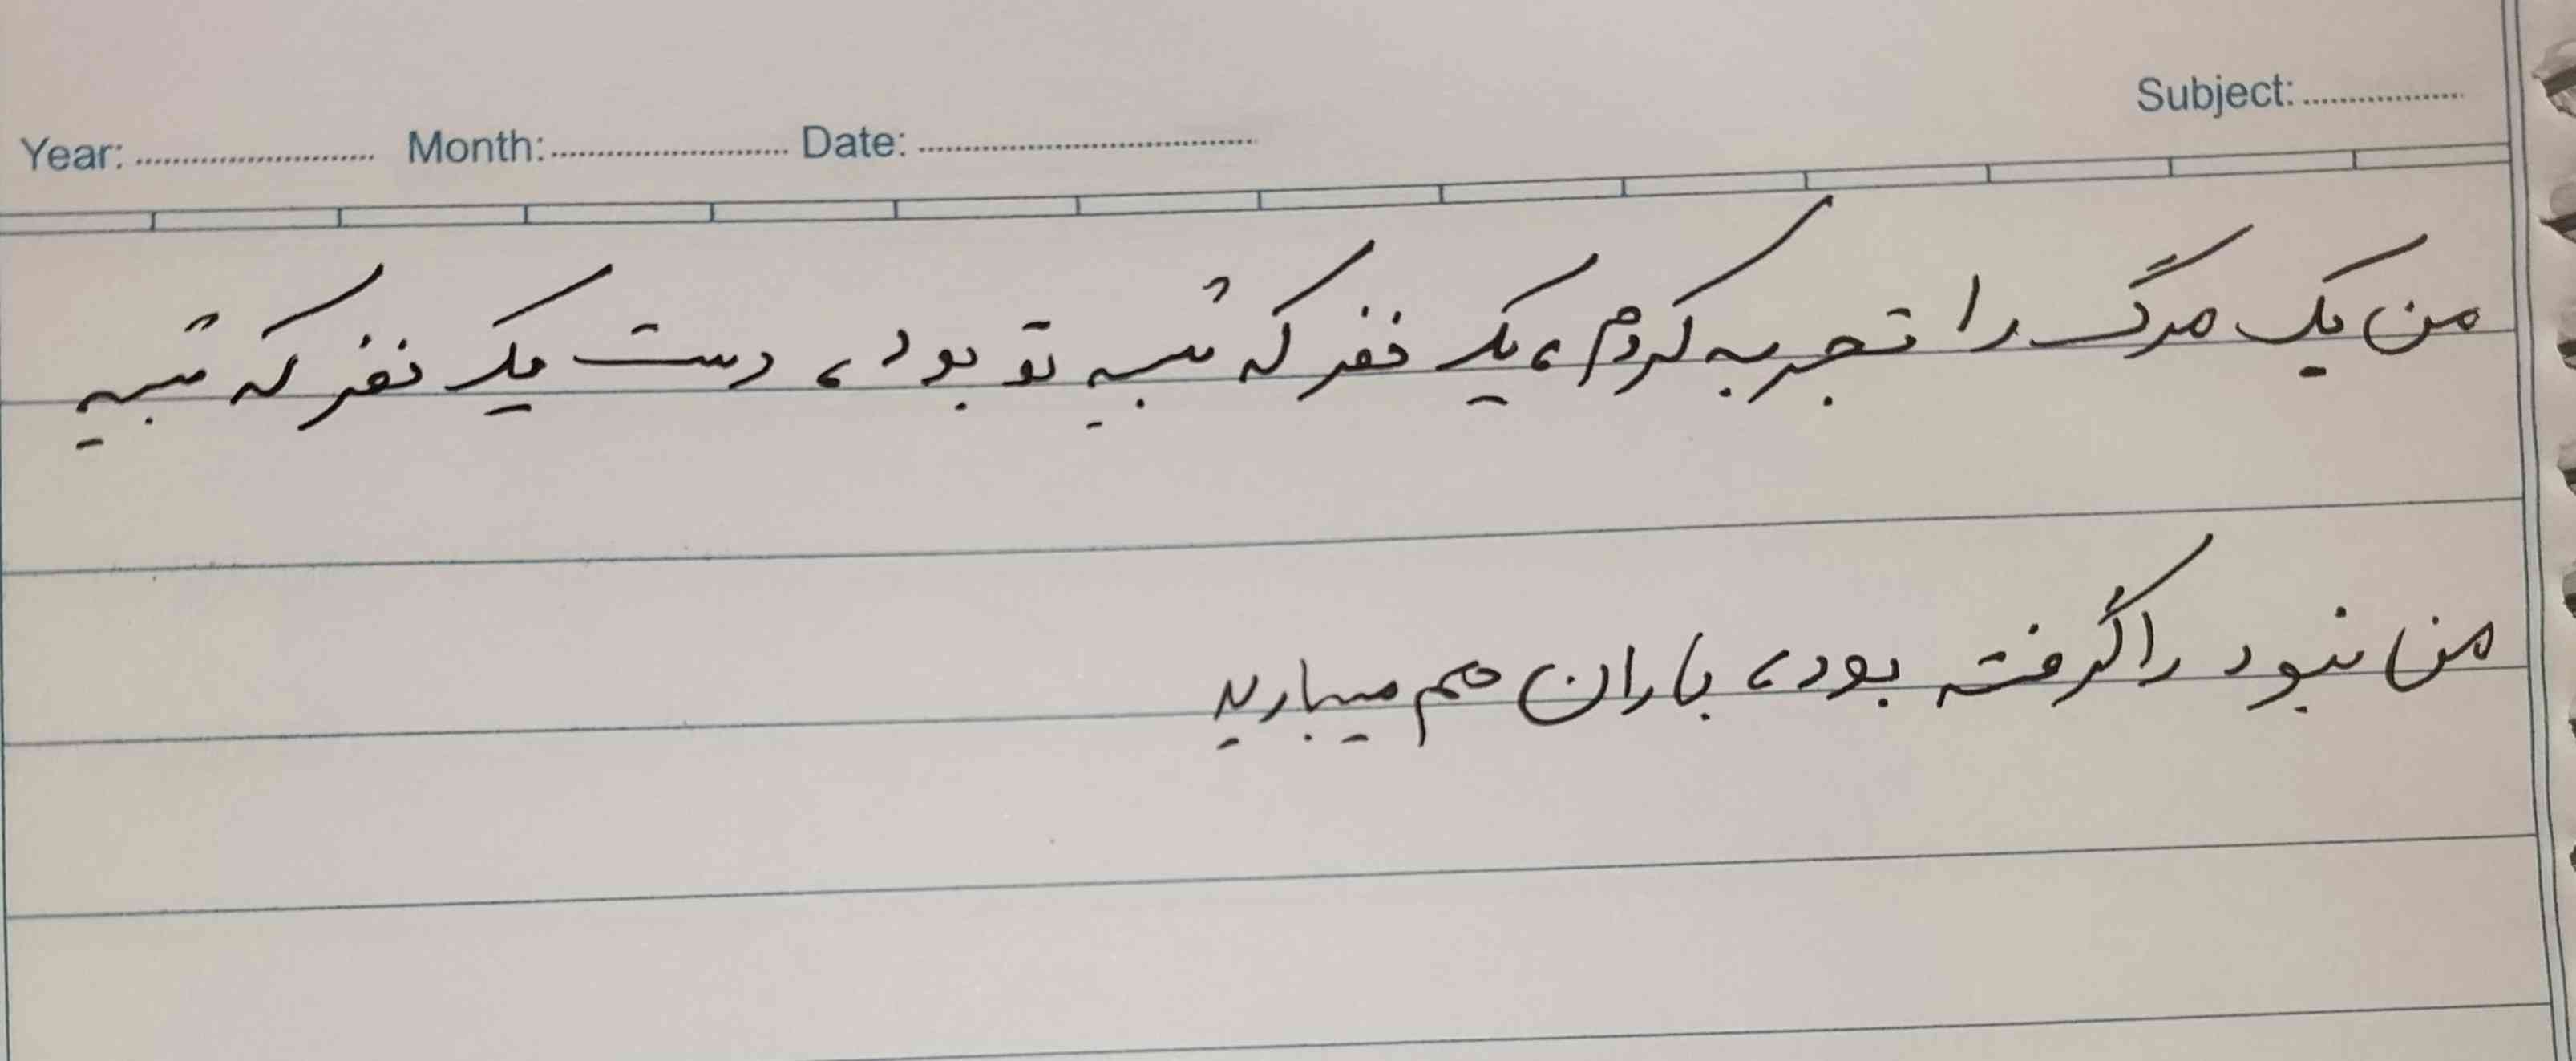 Subject:
Year: Month: Date:
من یک مرگ را تجربه کردم، یک نفر که شبیه تو بود، دست یک نفر که شبیه
من نبود را گرفته بود، باران هم میبارید